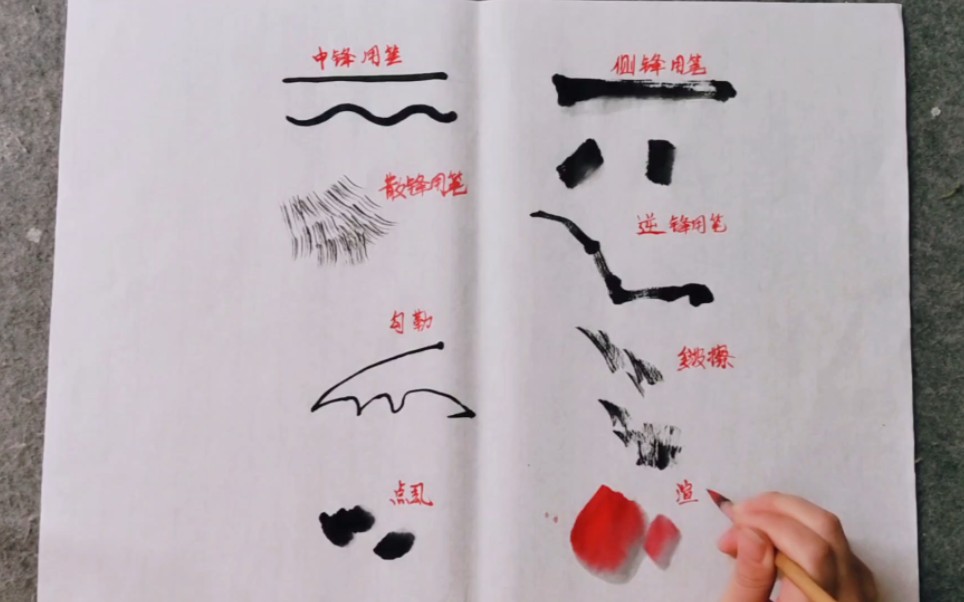 中锋用笔
侧锋用笔
散锋用笔
逆锋用笔
勾勒
皴擦
点
渲